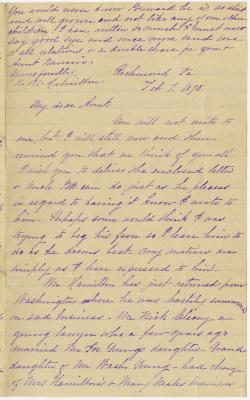 You would never know Bernard he is so stout
and well grown and not like any of my other
children. I can write so much I must now
say good bye and once more send love
to all relations & a double share for you &
Aunt Nannie.
Yours fondly,
Hamilton.
Richmond Va.
Feb 7. 1878.
My dear Aunt.
You will not write to
me, but I will still now and then
remind you that we think of you all.
I wish you to deliver the enclosed letter
& Uncle can do just as he pleases
in regard to having it known I wrote to
him. Perhaps some would think I was
trying to beg his favor so I leave him to
do as he deems best. My motives are
simply as I have expressed to him.
Mr Hamilton has just returned from
Washington where he was hastily summoned
on sad business. Mr Dick a
young lawyer who a few years ago
married Mr Joe Young's daughter - Grand
daughter of Mr Wash. Young - had charge
of Mrs Hamilton's & Mary business